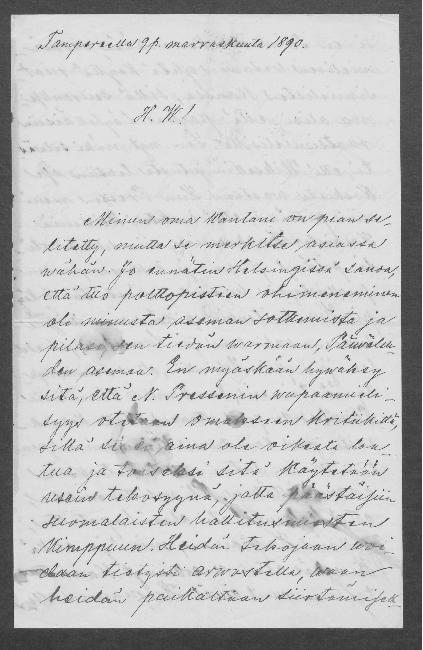 Tampereella 9 p. marraskuuta 1890.
H. W.!
Minun oma kantani on pian se-
litetty, mutta se merkitse asiassa
wähän. Jo ennätin Helsingissä sanoa,
että tuo polttopisteen ohimeneminen
oli minusta aseman sotkemista ja
pilasi sen tiedän warmaan, Päiwäleh-
den asemaa. En myöskään hywäksy
sitä, että N. Pressenin wapaamieli-
syys otetaan omakseen kritiikittä,
sillä se ei aina ole oikeata laa-
tua ja toiseksi sitä käytetään
usein tekosyynä, jotta päästäisiin
suomalaisten hallitusmiesten
kimppuun. Heidän tekojaan woi-
daan tietysti arwostella, waan
heidän paikaltaan siirtämisek-